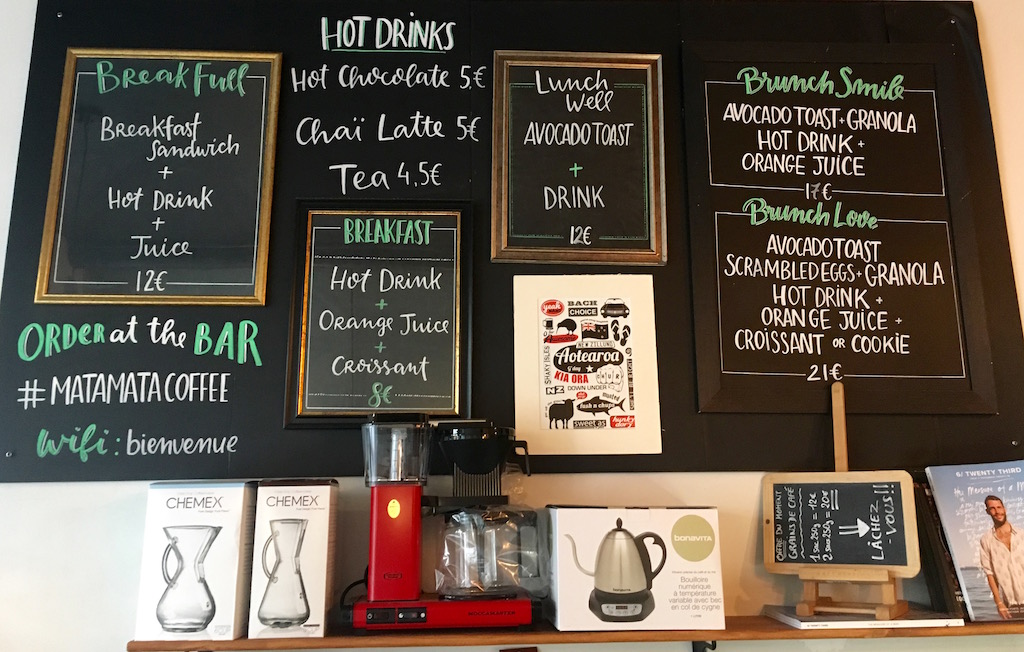 BreakFull
Breakfast
Sandwich
+
Hot Drink
+
Juice
12€
HOT DRINKS
Hot Chocolate 5€
Chaï Latte 5€
Tea 4,5€
BREAKFAST
Hot Drink
+
Orange Juice
+
Croissant
8€
Lunch
Well
AVOCADO TOAST
+
DRINK
12€
Brunch Smile
AVOCADO TOAST + GRANOLA
HOT DRINK +
ORANGE JUICE
17€
Brunch Love
AVOCADO TOAST
SCRAMBLED EGGS + GRANOLA
HOT DRINK +
ORANGE JUICE +
CROISSANT OR COOKIE
21€
ORDER at the BAR
# MATAMATACOFFEE
Wifi : bienvenue
yeah
BACH
CHOICE
NEW ZILLUND
SHAKY ISLES
Aotearoa
g'day
KIA ORA
CHUR
NZ
DOWN UNDER
fush n chups
sweet as
hunky
dory
CHEMEX
CHEMEX
MOCCAMASTER
bonavita
Bouilloire
numérique
à température
variable avec bec
en col de cygne
OFFRE DU MOMENT
GRAINS DE CAFÉ
1 sac 250g = 12€
2 sacs 250g = 20€
LÂCHEZ
-VOUS!!
6/ TWENTY THIRD